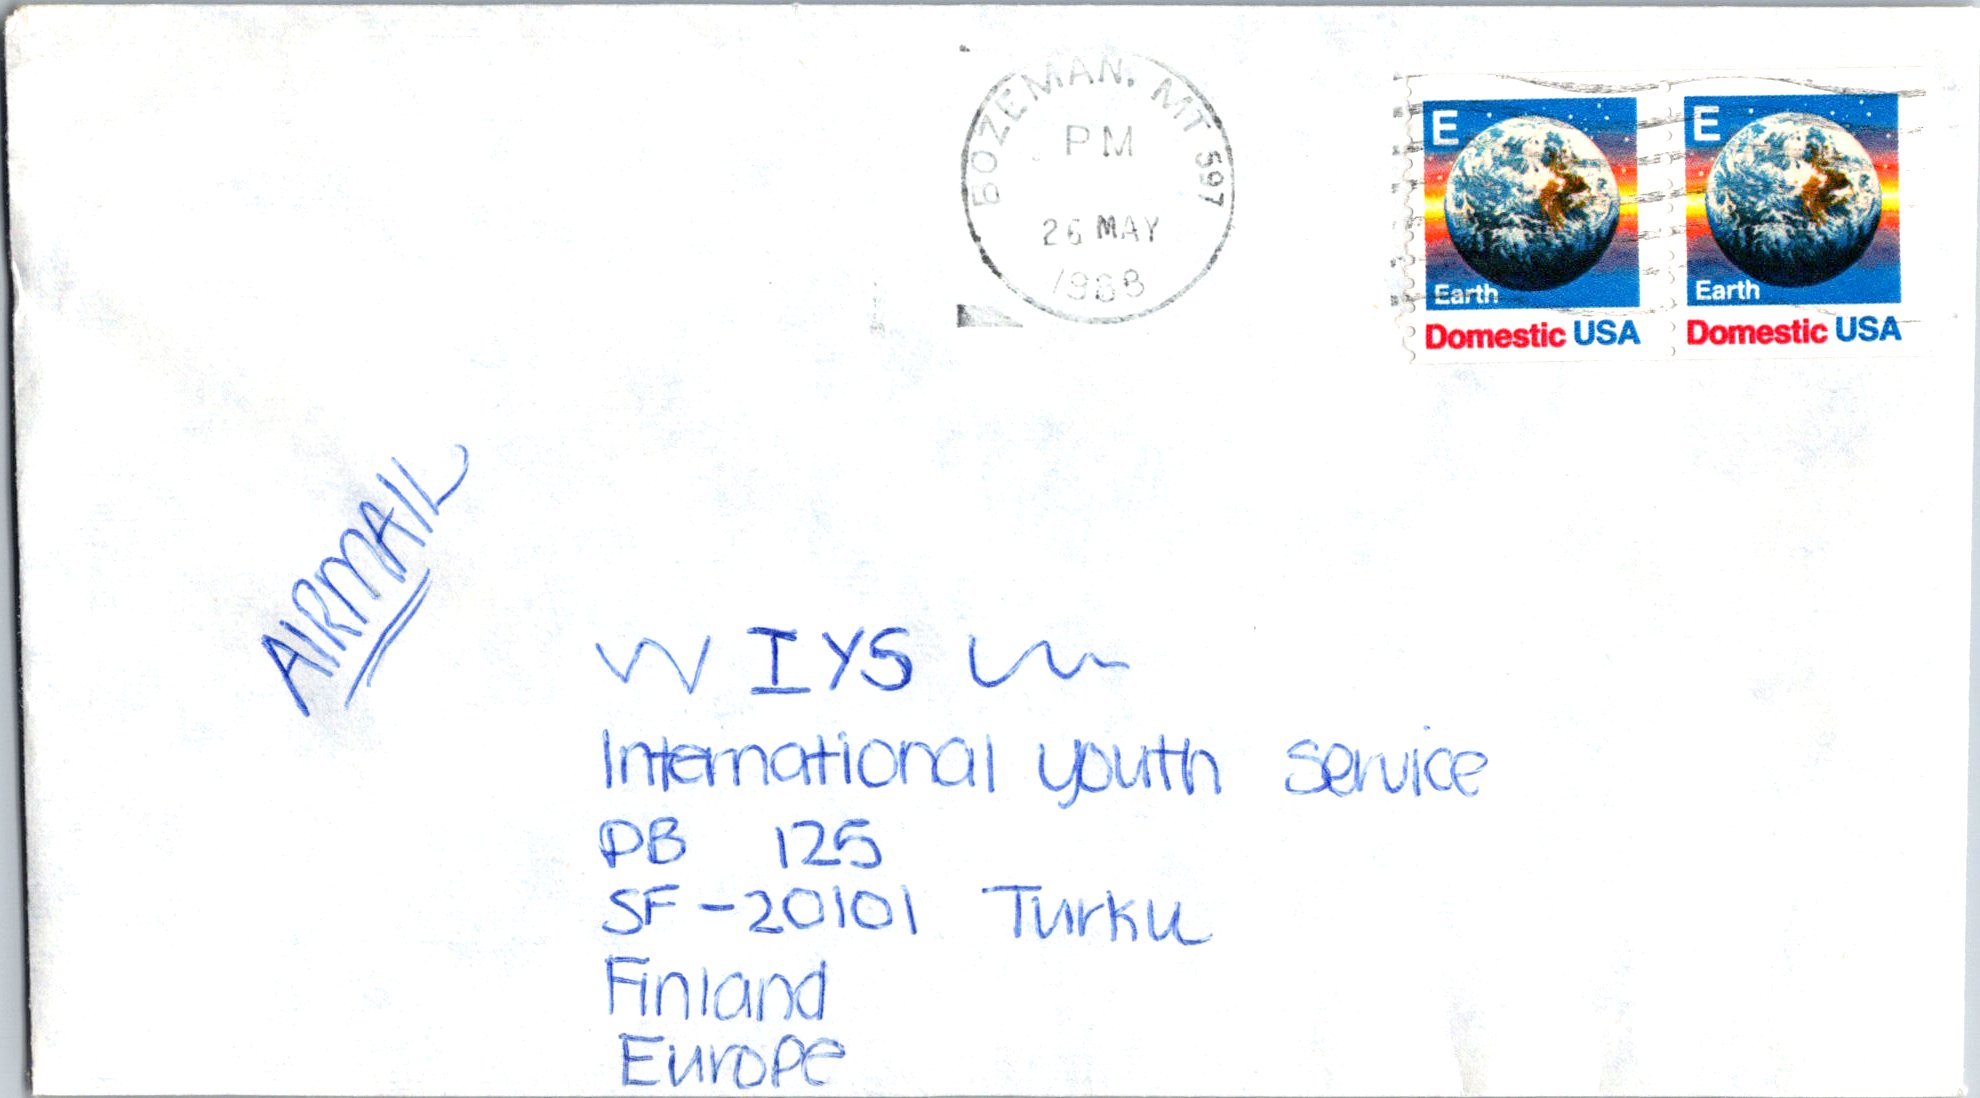 BOZEMAN, MT 597
PM
26 MAY
1988
E
Earth
Domestic USA
E
Earth
Domestic USA
AIRMAIL
IYS
International youth service
PB 125
SF-20101 Turku
Finland
Europe